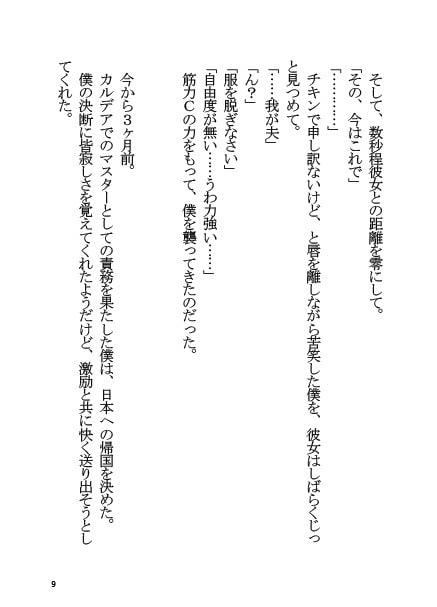 そして、数秒程彼女との距離を零にして。
「その、今はこれで」
「…………」
チキンで申し訳ないけど、と唇を離しながら苦笑した僕を、彼女はしばらくじっ
と見つめて。
「……我が夫」
「ん？」
「服を脱ぎなさい」
「自由度が無い……うわ力強い……」
筋力Ｃの力をもって、僕を襲ってきたのだった。
今から３ヶ月前。
カルデアでのマスターとしての責務を果たした僕は、日本への帰国を決めた。
僕の決断に皆寂しさを覚えてくれたようだけど、激励と共に快く送り出そうとし
てくれた。
9